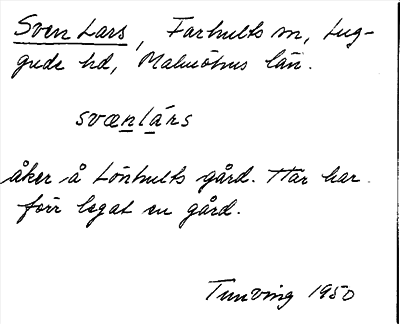 Sven Lars, Farhults sn, Lug-
gude hd, Malmöhus län.
svænlárs
åker å Lönhults gård. Här har
förr legat en gård.
Tunving 1950